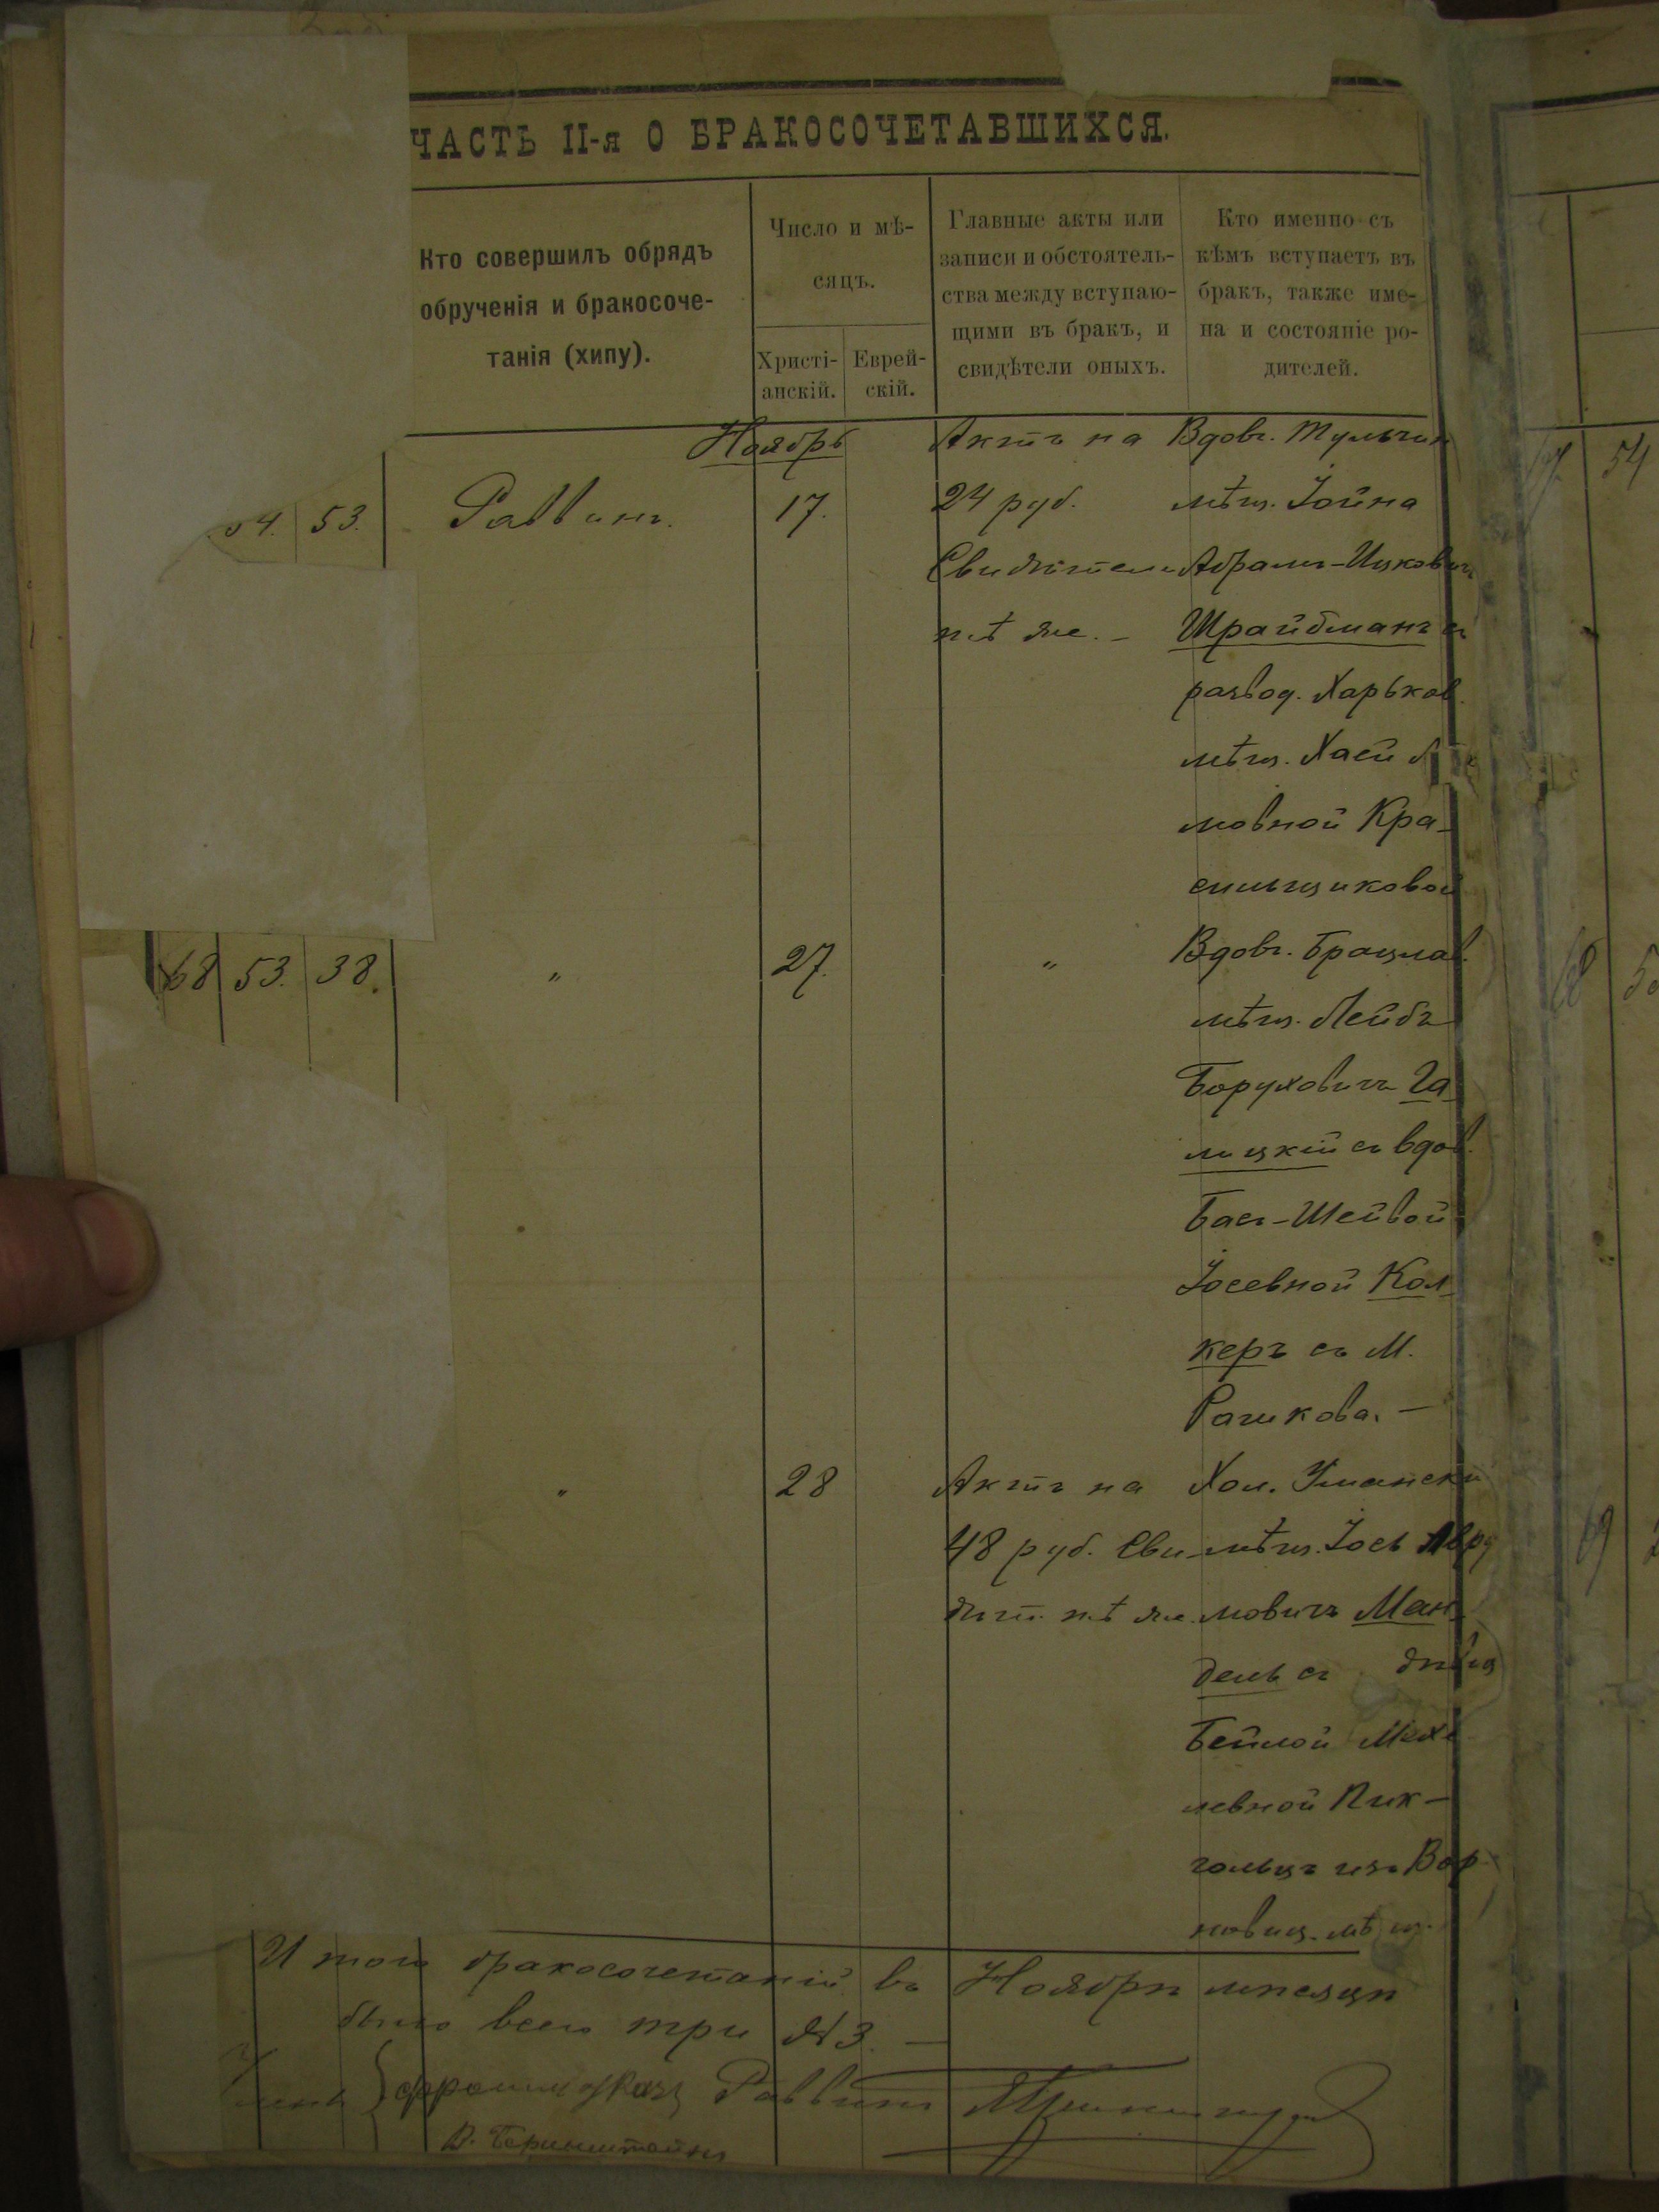 ЧАСТЬ II-я О БРАКОСОЧЕТАВШИХСЯ.
Кто совершилъ обрядъ
обрученія и бракосоче-
танія (хипу).
Число и мѣ-
сяцъ.
Христі-
анскій.
Еврей-
скій.
Главные акты или
записи и обстоятель-
ства между вступаю-
щими въ бракъ, и
свидѣтели оныхъ.
Кто именно съ
кѣмъ вступаетъ въ
бракъ, также име-
на и состояніе ро-
дителей.
Ноябрь
54
54. 53. Раввинъ. 17.
Актъ на
24 руб.
Свидѣтели
тѣ же. –
Вдов. Тульчин
мѣщ. Іойна
Абрамъ-Ицковичъ
Шрайбманъ съ
развод. Харьков.
мѣщ. Хаей
мовной Кра-
сильщиковой
68 53. 38. " 27. "
Вдов. Брацлав.
мѣщ. Лейбъ
Боруховичъ Га-
лицкій съ вдов.
Бася-Шейвой
Іосевной Кол-
керъ съ М.
Рашкова. –
" 28
Актъ на
48 руб. Сви-
дѣт. тѣ же.
Хол. Уманскій
мѣщ. Іось
мовичъ Ман-
дель съ дѣвиц
Бейлой Мих
левной Пик-
гольцъ изъ
новиц. мѣщ.
69
Итого бракосочетаній въ Ноябрѣ мѣсяцѣ
было всего три №3. –
Раввинъ
В. Беринштейнъ